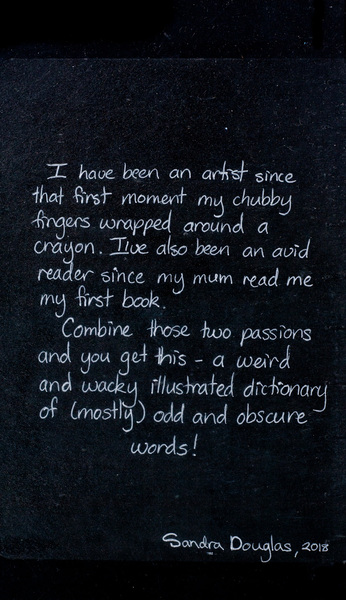 I have been an artist since
that first moment my chubby
fingers wrapped around a
crayon. I've also been an avid
reader since my mum read me
my first book.
Combine those two passions
and you get this - a weird
and wacky illustrated dictionary
of (mostly) odd and obscure
words!
Sandra Douglas, 2018